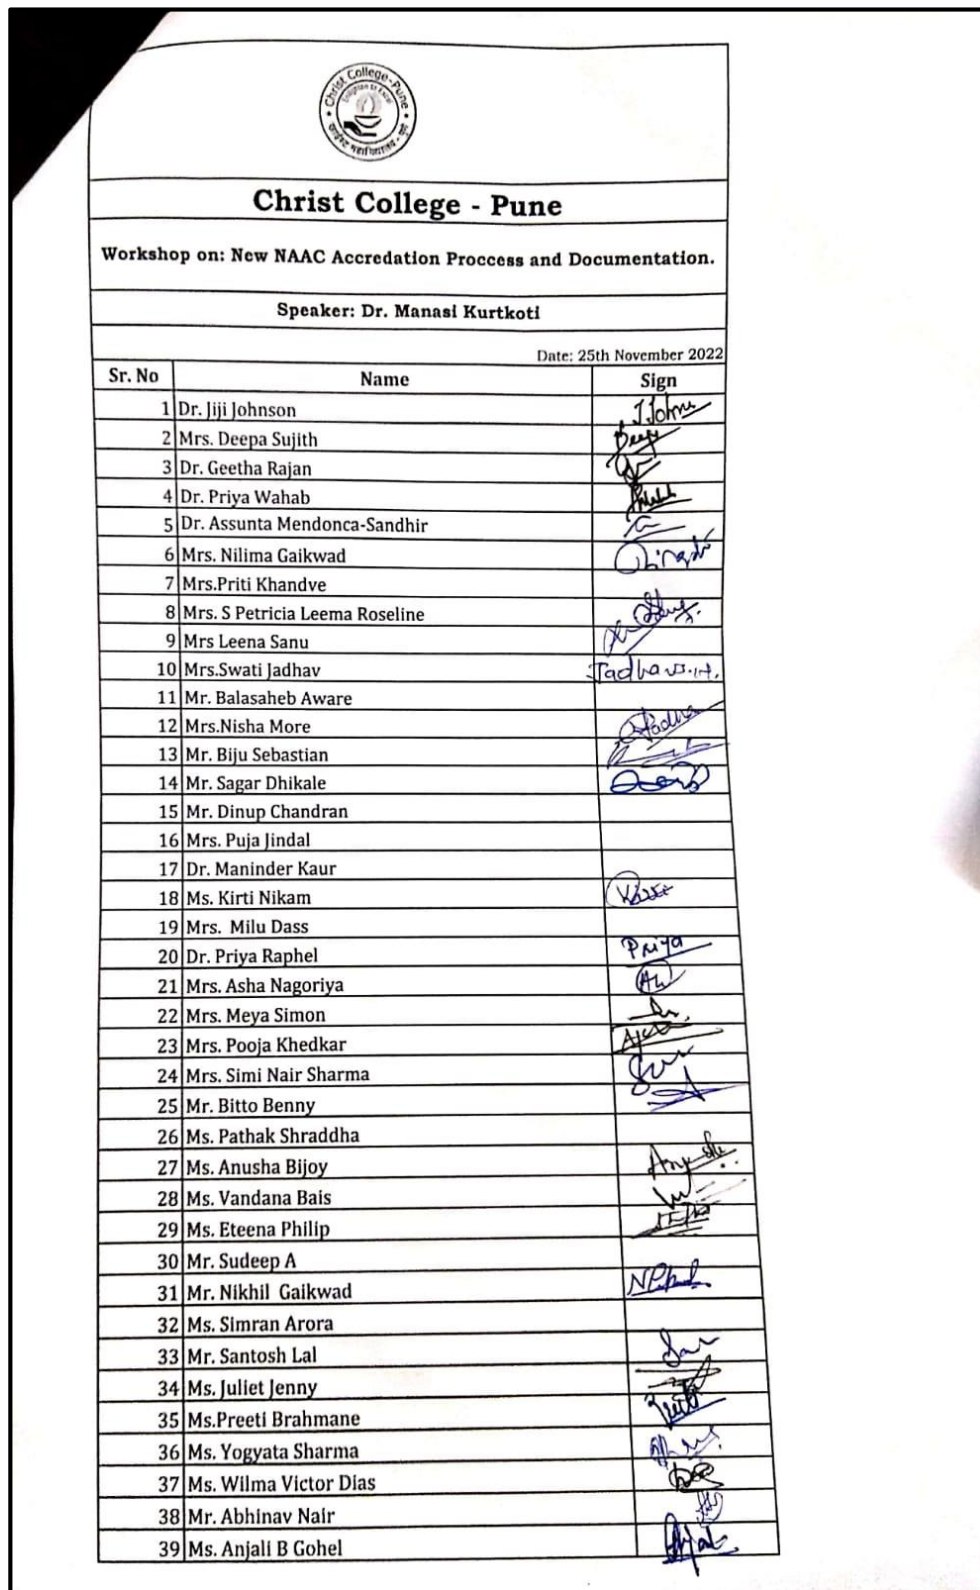 Christ College-Pune
ख्राईस्ट महाविद्यालय - पुणे
Christ College - Pune
Workshop on: New NAAC Accredation Proccess and Documentation.
Speaker: Dr. Manasi Kurtkoti
Date: 25th November 2022
Sr. No Name Sign
1 Dr. Jiji Johnson
2 Mrs. Deepa Sujith
3 Dr. Geetha Rajan
4 Dr. Priya Wahab
5 Dr. Assunta Mendonca-Sandhir
6 Mrs. Nilima Gaikwad
7 Mrs.Priti Khandve
8 Mrs. S Petricia Leema Roseline
9 Mrs Leena Sanu
10 Mrs.Swati Jadhav
11 Mr. Balasaheb Aware
12 Mrs.Nisha More
13 Mr. Biju Sebastian
14 Mr. Sagar Dhikale
15 Mr. Dinup Chandran
16 Mrs. Puja Jindal
17 Dr. Maninder Kaur
18 Ms. Kirti Nikam
19 Mrs. Milu Dass
20 Dr. Priya Raphel Priya
21 Mrs. Asha Nagoriya
22 Mrs. Meya Simon
23 Mrs. Pooja Khedkar
24 Mrs. Simi Nair Sharma
25 Mr. Bitto Benny
26 Ms. Pathak Shraddha
27 Ms. Anusha Bijoy
28 Ms. Vandana Bais
29 Ms. Eteena Philip
30 Mr. Sudeep A
31 Mr. Nikhil Gaikwad
32 Ms. Simran Arora
33 Mr. Santosh Lal
34 Ms. Juliet Jenny
35 Ms.Preeti Brahmane
36 Ms. Yogyata Sharma
37 Ms. Wilma Victor Dias
38 Mr. Abhinav Nair
39 Ms. Anjali B Gohel